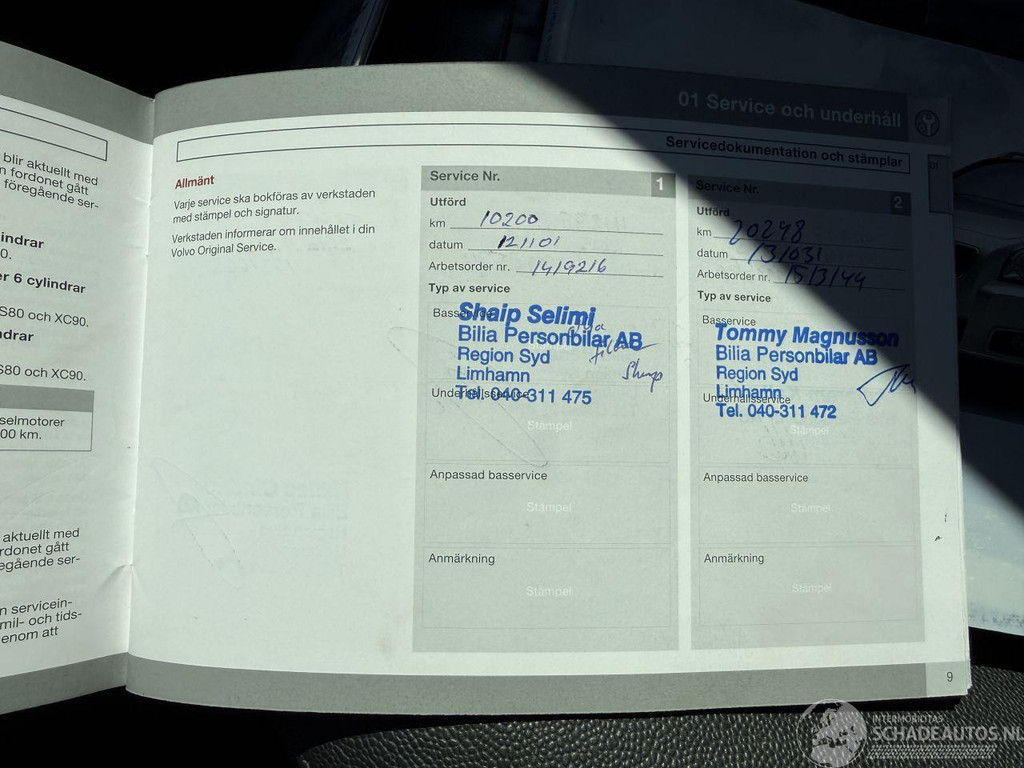 blir aktuellt med
n fordonet gått
föregående ser-
indrar
0.
er 6 cylindrar
S80 och XC90.
ndrar
S80 och XC90.
selmotorer
00 km.
aktuellt med
fordonet gått
egående ser-
n servicein-
mil- och tids-
enom att
01 Service och underhåll
Servicedokumentation och stämplar
01
Allmänt
Varje service ska bokföras av verkstaden
med stämpel och signatur.
Verkstaden informerar om innehållet i din
Volvo Original Service.
Service Nr. 1
Utförd
km 10200
datum 121101
Arbetsorder nr. 1419216
Typ av service
Basservice
Shaip Selimi
Bilia Personbilar AB
Region Syd
Limhamn
Underhållsservice
Tel. 040-311 475
Stämpel
Anpassad basservice
Stämpel
Anmärkning
Stämpel
Service Nr. 2
Utförd
km 20248
datum 131031
Arbetsorder nr. 1513144
Typ av service
Basservice
Tommy Magnusson
Bilia Personbilar AB
Region Syd
Limhamn
Underhållsservice
Tel. 040-311 472
Stämpel
Anpassad basservice
Stämpel
Anmärkning
Stämpel
9
INTERMOBILITAS
SCHADEAUTOS.NL